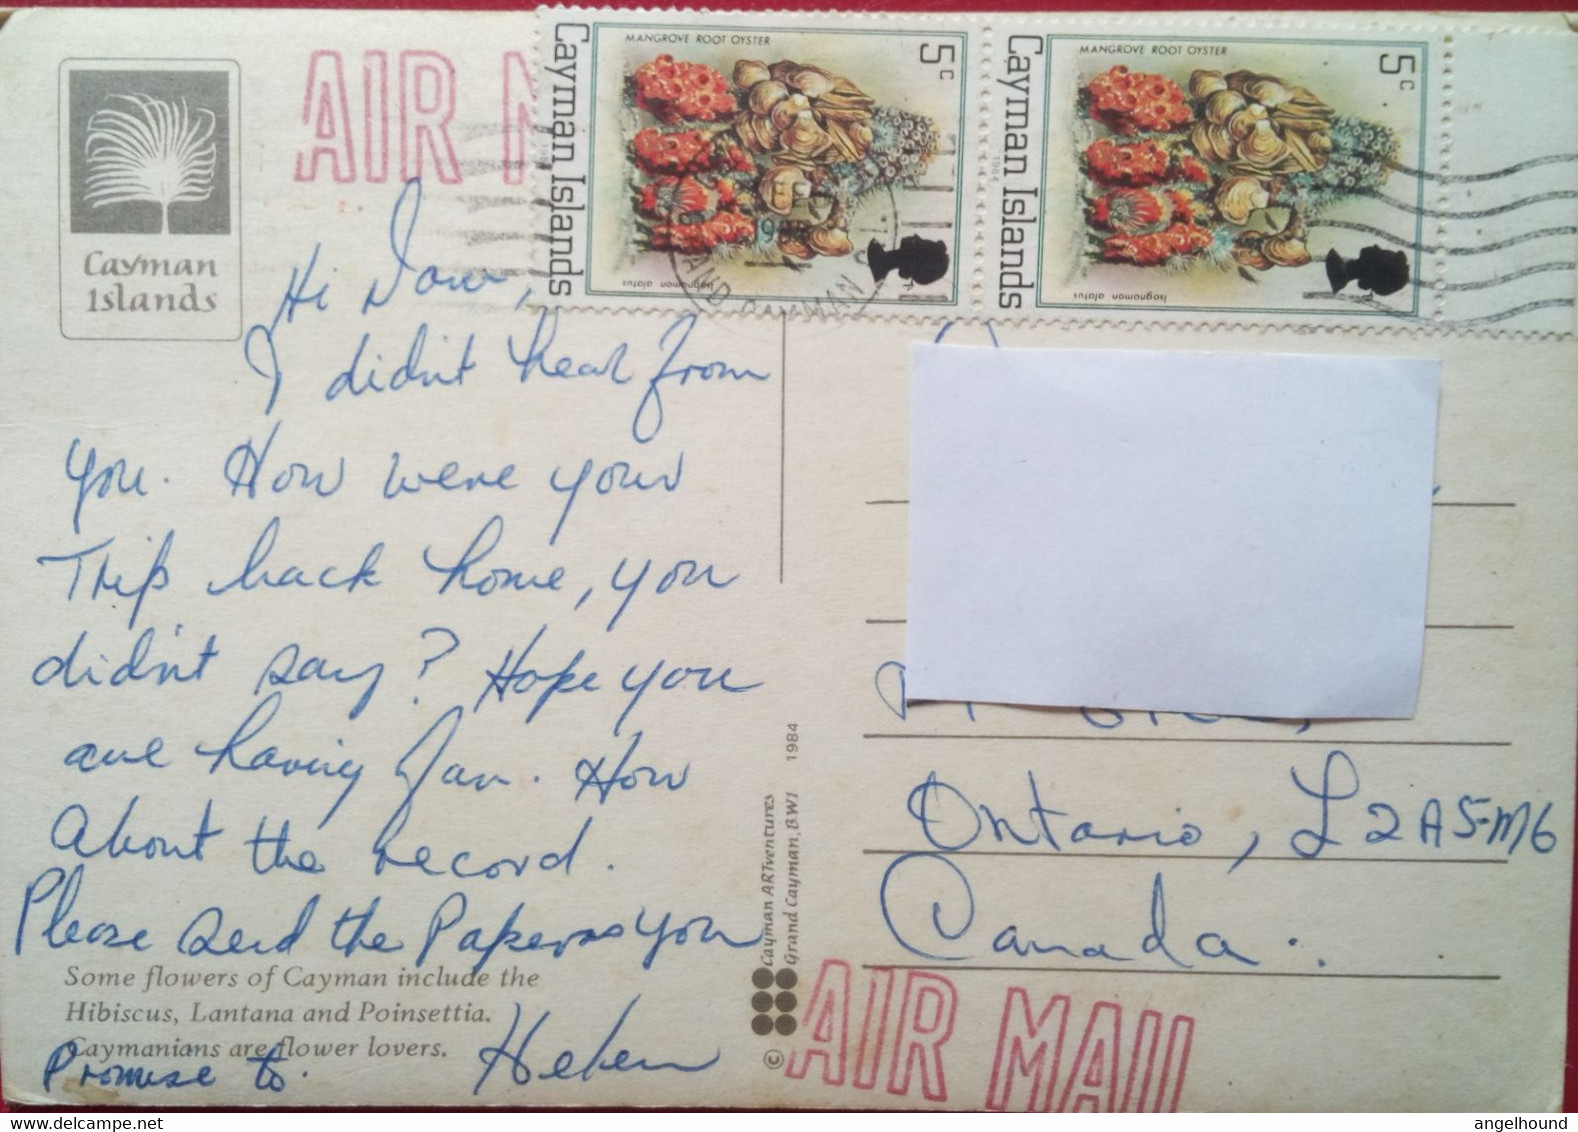 AIR M
Cayman Islands
MANGROVE ROOT OYSTER
5c
1984
Isognomon alatus
Cayman Islands
MANGROVE ROOT OYSTER
5c
1984
Isognomon alatus
GRAND CAYMAN
Cayman
Islands
Hi
I didn't hear from
you. How were your
Trip back home, you
didn't say? Hope you
are having fan. How
About the record.
Please send the Papers you
Promise to.
Helen
Some flowers of Cayman include the
Hibiscus, Lantana and Poinsettia.
Caymanians are flower lovers.
© Cayman ARTventures
Grand Cayman, B.W.I 1984
Ontario, L2A5-M6
Canada.
AIR MAIL
delcampe.net
angelhound